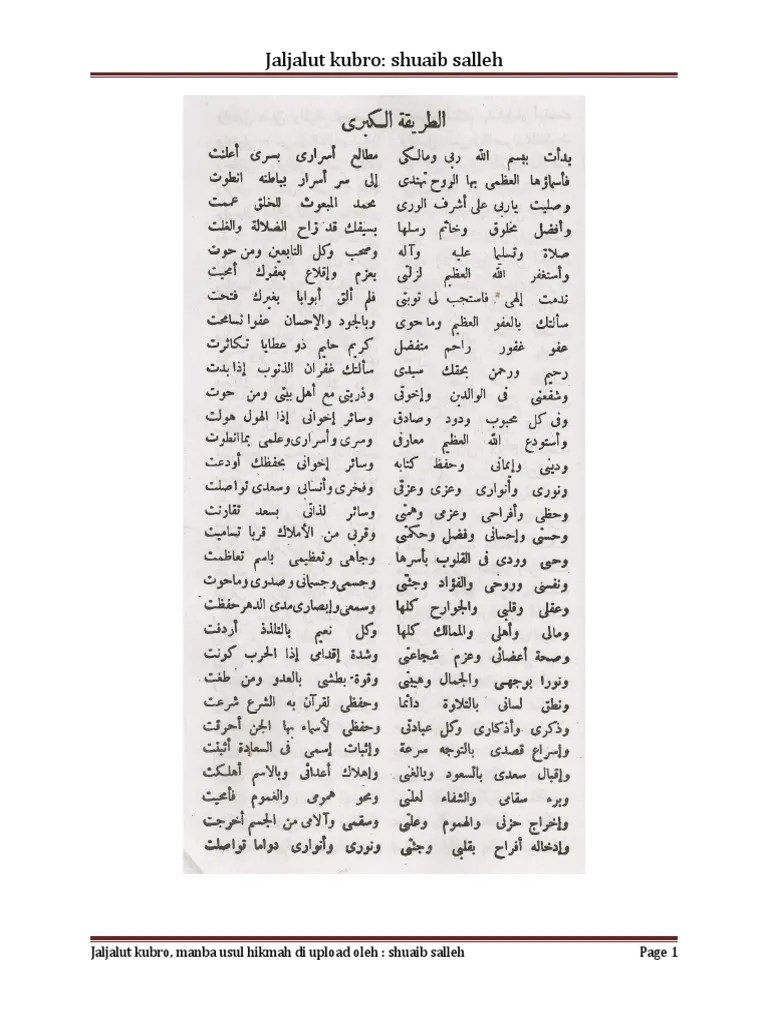 Jaljalut kubro: shuaib salleh
الطريقة الكبرى
بدأت ببسم الله ربى ومالكى مطالع أسرارى بسرى أعلنت
فأسماؤها العظمى بها الروح تهتدى إلى سر أسرار بباطنه انطوت
وصليت ياربى على أشرف الورى محمد المبعوث للخلق عممت
وأفضل مخلوق وخاتم رسلها بسيفك قد زاح الضلالة والغلت
صلاة وتسليما عليه وآله وصحب وكل التابعين ومن حوت
وأستغفر الله العظيم لزلتى بعزم وإقلاع بعفوك أمحيت
ندمت إلهى فاستجب لى توبتى فلم ألق أبوابا بغيرك فتحت
سألتك بالعفو العظيم وما حوى وبالجود والإحسان عفوا تسامحت
عفو غفور راحم متفضل كريم حليم ذو عطايا تكاثرت
رحيم ورحمن بحقك سيدى سألتك غفران الذنوب إذا بدت
وشفعنى فى الوالدين وإخوتى وذريتى مع أهل بيتى ومن حوت
وفى كل محبوب ودود وصادق وسائر إخوانى إذا الهول هولت
وأستودع الله العظيم معارفى وسرى وأسرارى وعلمى بما انطوت
ودينى وإيمانى وحفظ كتابه وسائر إخوانى بحفظك أودعت
ونورى وأنوارى وعزى وعزتى وفخرى وأنسابى وسعدى تواصلت
وحظى وأفراحى وعزمى وهمتى وسائر لذاتى بسعد تقارنت
وحسنى وإحسانى وفضل وحكمتى وقربى من الأملاك قربا تساميت
وحبى وودى فى القلوب بأسرها وجاهى وتعظيمى باسم تعاظمت
ونفسى وروحى والفؤاد وجثتى وجسمى وجسمانى وصدرى وماحوت
وعقلى وقلبى والجوارح كلها وسمعى وإبصارى مدى الدهر حفظت
ومالى وأهلى والممالك كلها وكل نعيم بالتلذذ أردفت
وصحة أعضائى وعزم شجاعتى وشدة إقدامى إذا الحرب كونت
ونورا بوجهى والجمال وهيبتى وقوة بطشى بالعدو ومن طغت
ونطق لسانى بالتلاوة دائما وحفظى لقرآن به الشرع شرعت
وذكرى وأذكارى وكل عبادتى وحفظى لأسماء بها الجن أحرقت
وإسراع قصدى بالتوجه سرعة وإثبات إسمى فى السعادة أثبتت
وإقبال سعدى بالسعود وبالغنى وإهلاك أعدائى وبالاسم أهلكت
وبرء سقامى والشفاء لعلتى ومحو همومى والغموم فأمحيت
وإخراج حزنى والهموم وعلتى وسقمى وآلامى من الجسم أخرجت
وإدخاله أفراح بقلبى وجثتى ونورى وأنوارى دواما تواصلت
Jaljalut kubro, manba usul hikmah di upload oleh : shuaib salleh Page 1